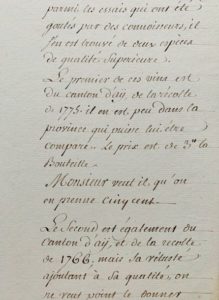 parmi les essais qui ont été
goutés par des connoisseurs, il
s'en est trouvé de deux espèces
de qualité Supérieure.
Le premier de ces vins est
du canton d'aÿ, de la récolte
de 1775. il en est, peu dans la
province qui puisse lui être
comparé. Le prix est de 3# la
Bouteille.
Monsieur veut il, qu'on
en prenne Cinq cent.
Le Second est également du
Canton d'aÿ et de la récolte
de 1766, mais Sa vétusté
ajoutant à Sa qualité, on
ne veut point le donner